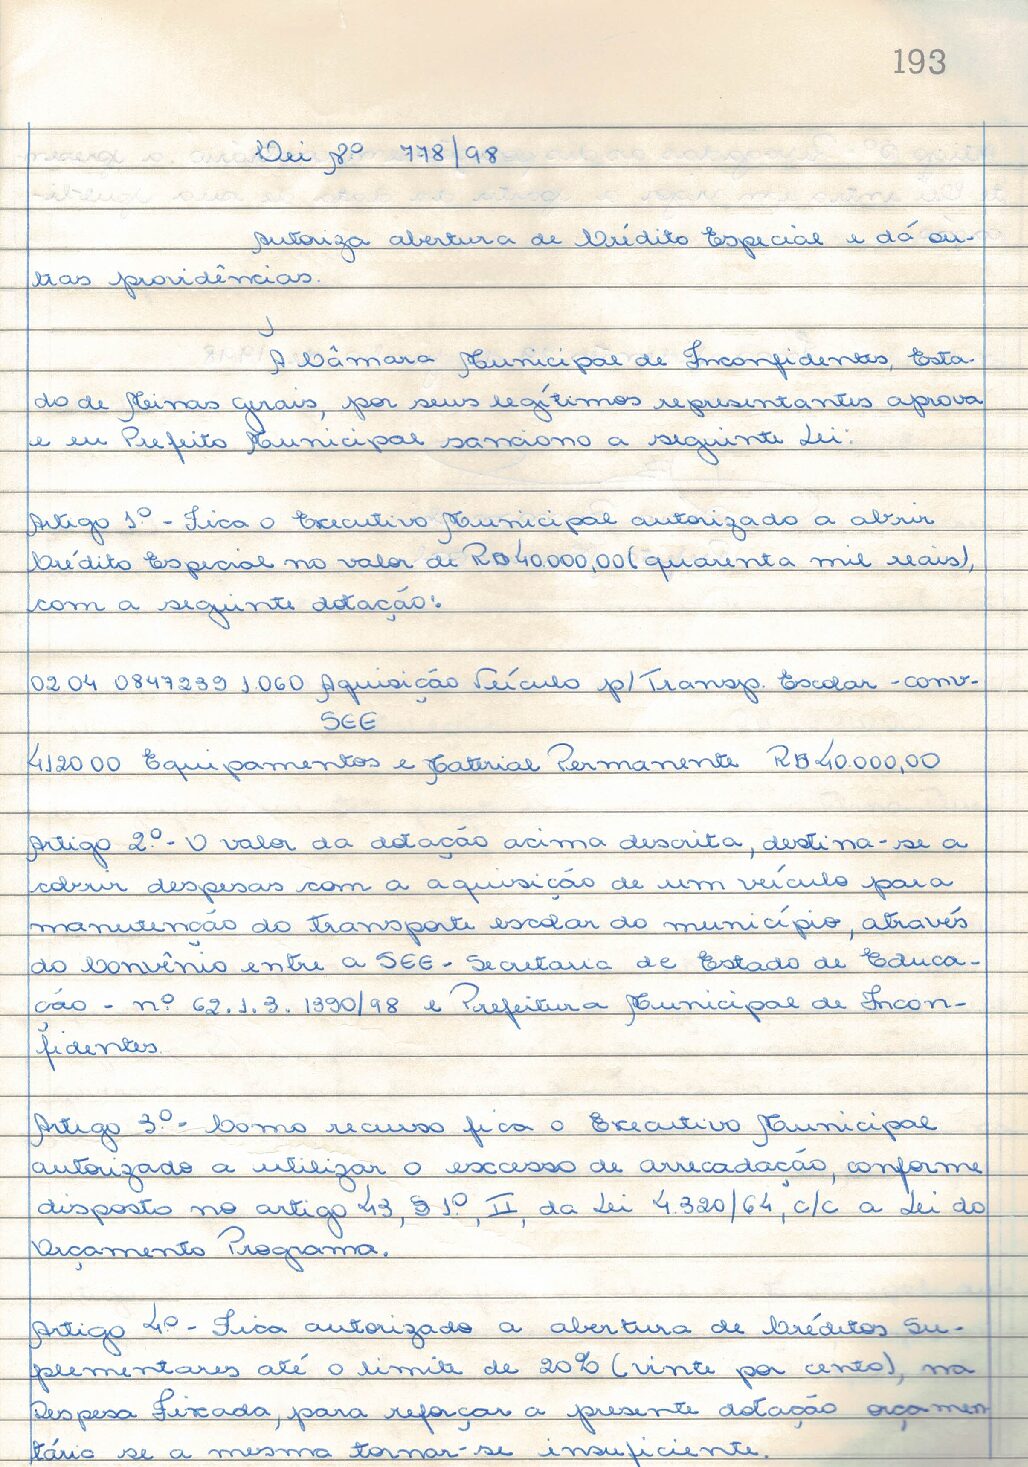 193
Lei nº 778/98
Autoriza abertura de Crédito Especial e dá ou-
tras providências.
A Câmara Municipal de Inconfidentes, Esta-
do de Minas Gerais, por seus legítimos representantes aprova
e eu Prefeito Municipal sanciono a seguinte Lei:
Artigo 1º - Fica o Executivo Municipal autorizado a abrir
Crédito Especial no valor de R$ 40.000,00 (quarenta mil reais),
com a seguinte dotação:
02 04 0847239 1.060 Aquisição Veículo p/ Transp. Escolar - conv-
SEE
4120 00 Equipamentos e Material Permanente R$ 40.000,00
Artigo 2º - O valor da dotação acima descrita, destina-se a
cobrir despesas com a aquisição de um veículo para
manutenção do transporte escolar do município, através
do Convênio entre a SEE - Secretaria de Estado de Educa-
ção - nº 62.1.3.1390/98 e Prefeitura Municipal de Incon-
fidentes.
Artigo 3º - Como recurso fica o Executivo Municipal
autorizado a utilizar o excesso de arrecadação, conforme
disposto no artigo 43, § 1º, II, da Lei 4.320/64, c/c a Lei do
Orçamento Programa.
Artigo 4º - Fica autorizado a abertura de Créditos Su-
plementares até o limite de 20% (vinte por cento), na
Despesa Fixada, para reforçar a presente dotação orçamen
tária se a mesma tornar-se insuficiente.